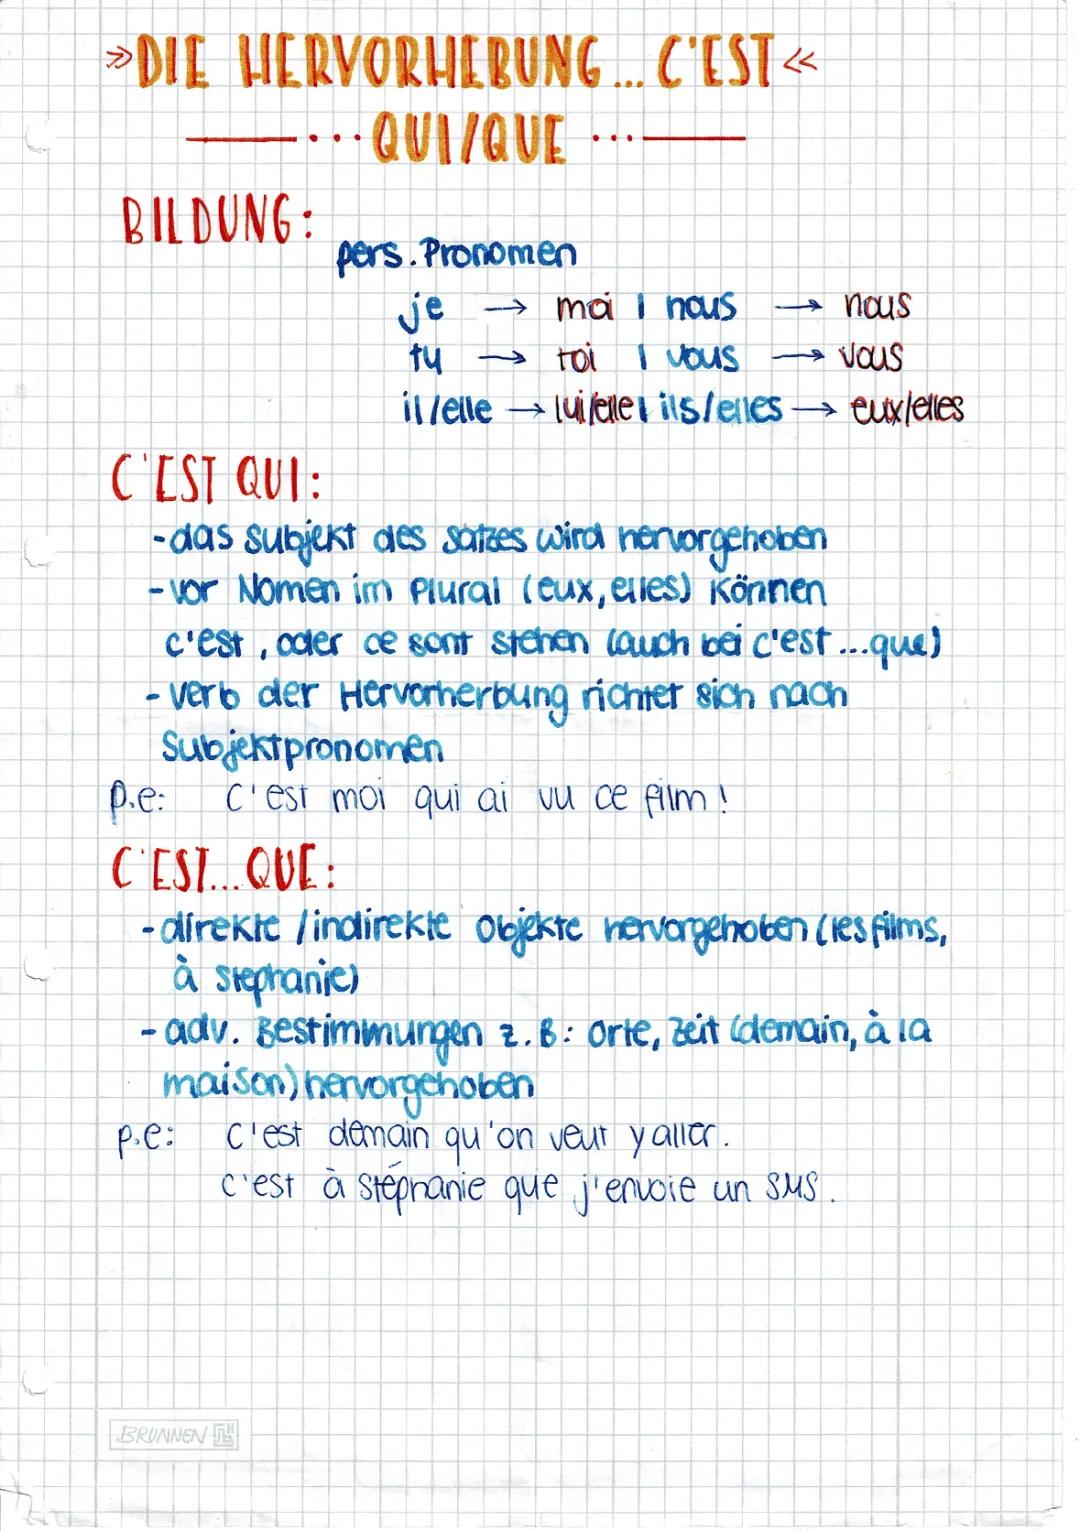 »DIE HERVORHEBUNG... C'EST«
... QUI/QUE ...
BILDUNG:
pers. Pronomen
je → moi | nous → nous
tu → toi | vous → vous
il/elle → lui/elle | ils/elles → eux/elles
C'EST QUI:
- das Subjekt des Satzes wird hervorgehoben
- vor Nomen im Plural (eux, elles) können
c'est, oder ce sont stehen (auch bei c'est...que)
- Verb der Hervorherbung richtet sich nach
Subjektpronomen
p.e: C'est moi qui ai vu ce film!
C'EST... QUE:
- direkte / indirekte Objekte hervorgehoben (les films,
à Stephanie)
- adv. Bestimmungen z.B: Orte, Zeit (demain, à la
maison) hervorgehoben
p.e: C'est demain qu'on veut y aller.
C'est à Stéphanie que j'envoie un SMS.
BRUNNEN